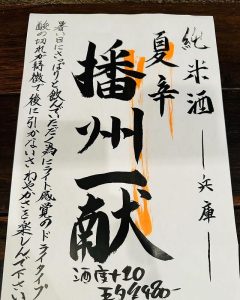 純米酒
―兵庫―
夏辛
播州一献
暑い日にさっぱりと飲んでいただく為にライト感覚のドライタイプ
酸の切れが特徴で後に引かないさわやかさを楽しんで下さい
酒度+20